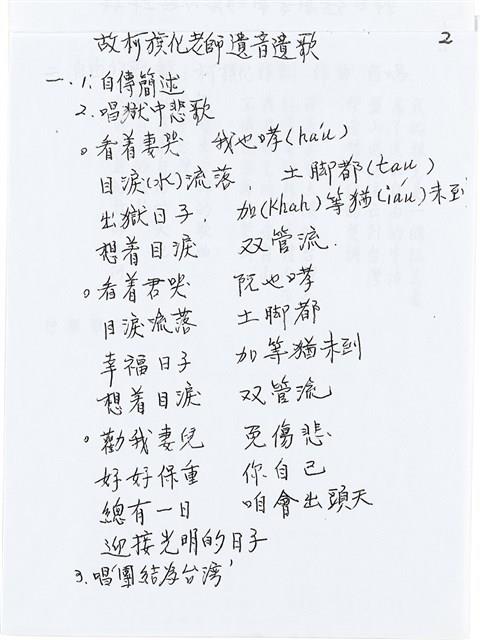 2
故柯旗化老師遺音遺歌
一、1.自傳簡述
2.唱獄中悲歌
。看着妻哭 我也哮(háu)
目淚(水)流落, 土脚都(tau)
出獄日子, 加(khah)等猶(iáu)未到
想着目淚 双管流.
。看着君哭 阮也哮
目淚流落 土脚都
幸福日子 加等猶未到
想着目淚 双管流
。勸我妻兒 免傷悲
好好保重 你自己
總有一日 咱會出頭天
迎接光明的日子
3.唱"團結為台湾"